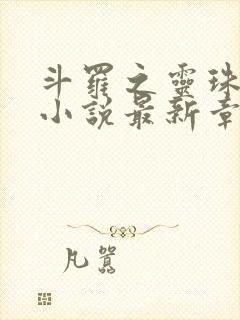 斗羅之靈珠
小說最新章
凡囂